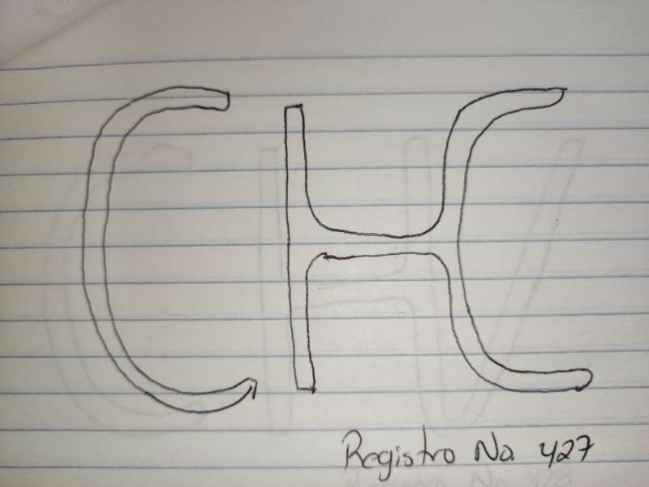 CHC
Registro No 427